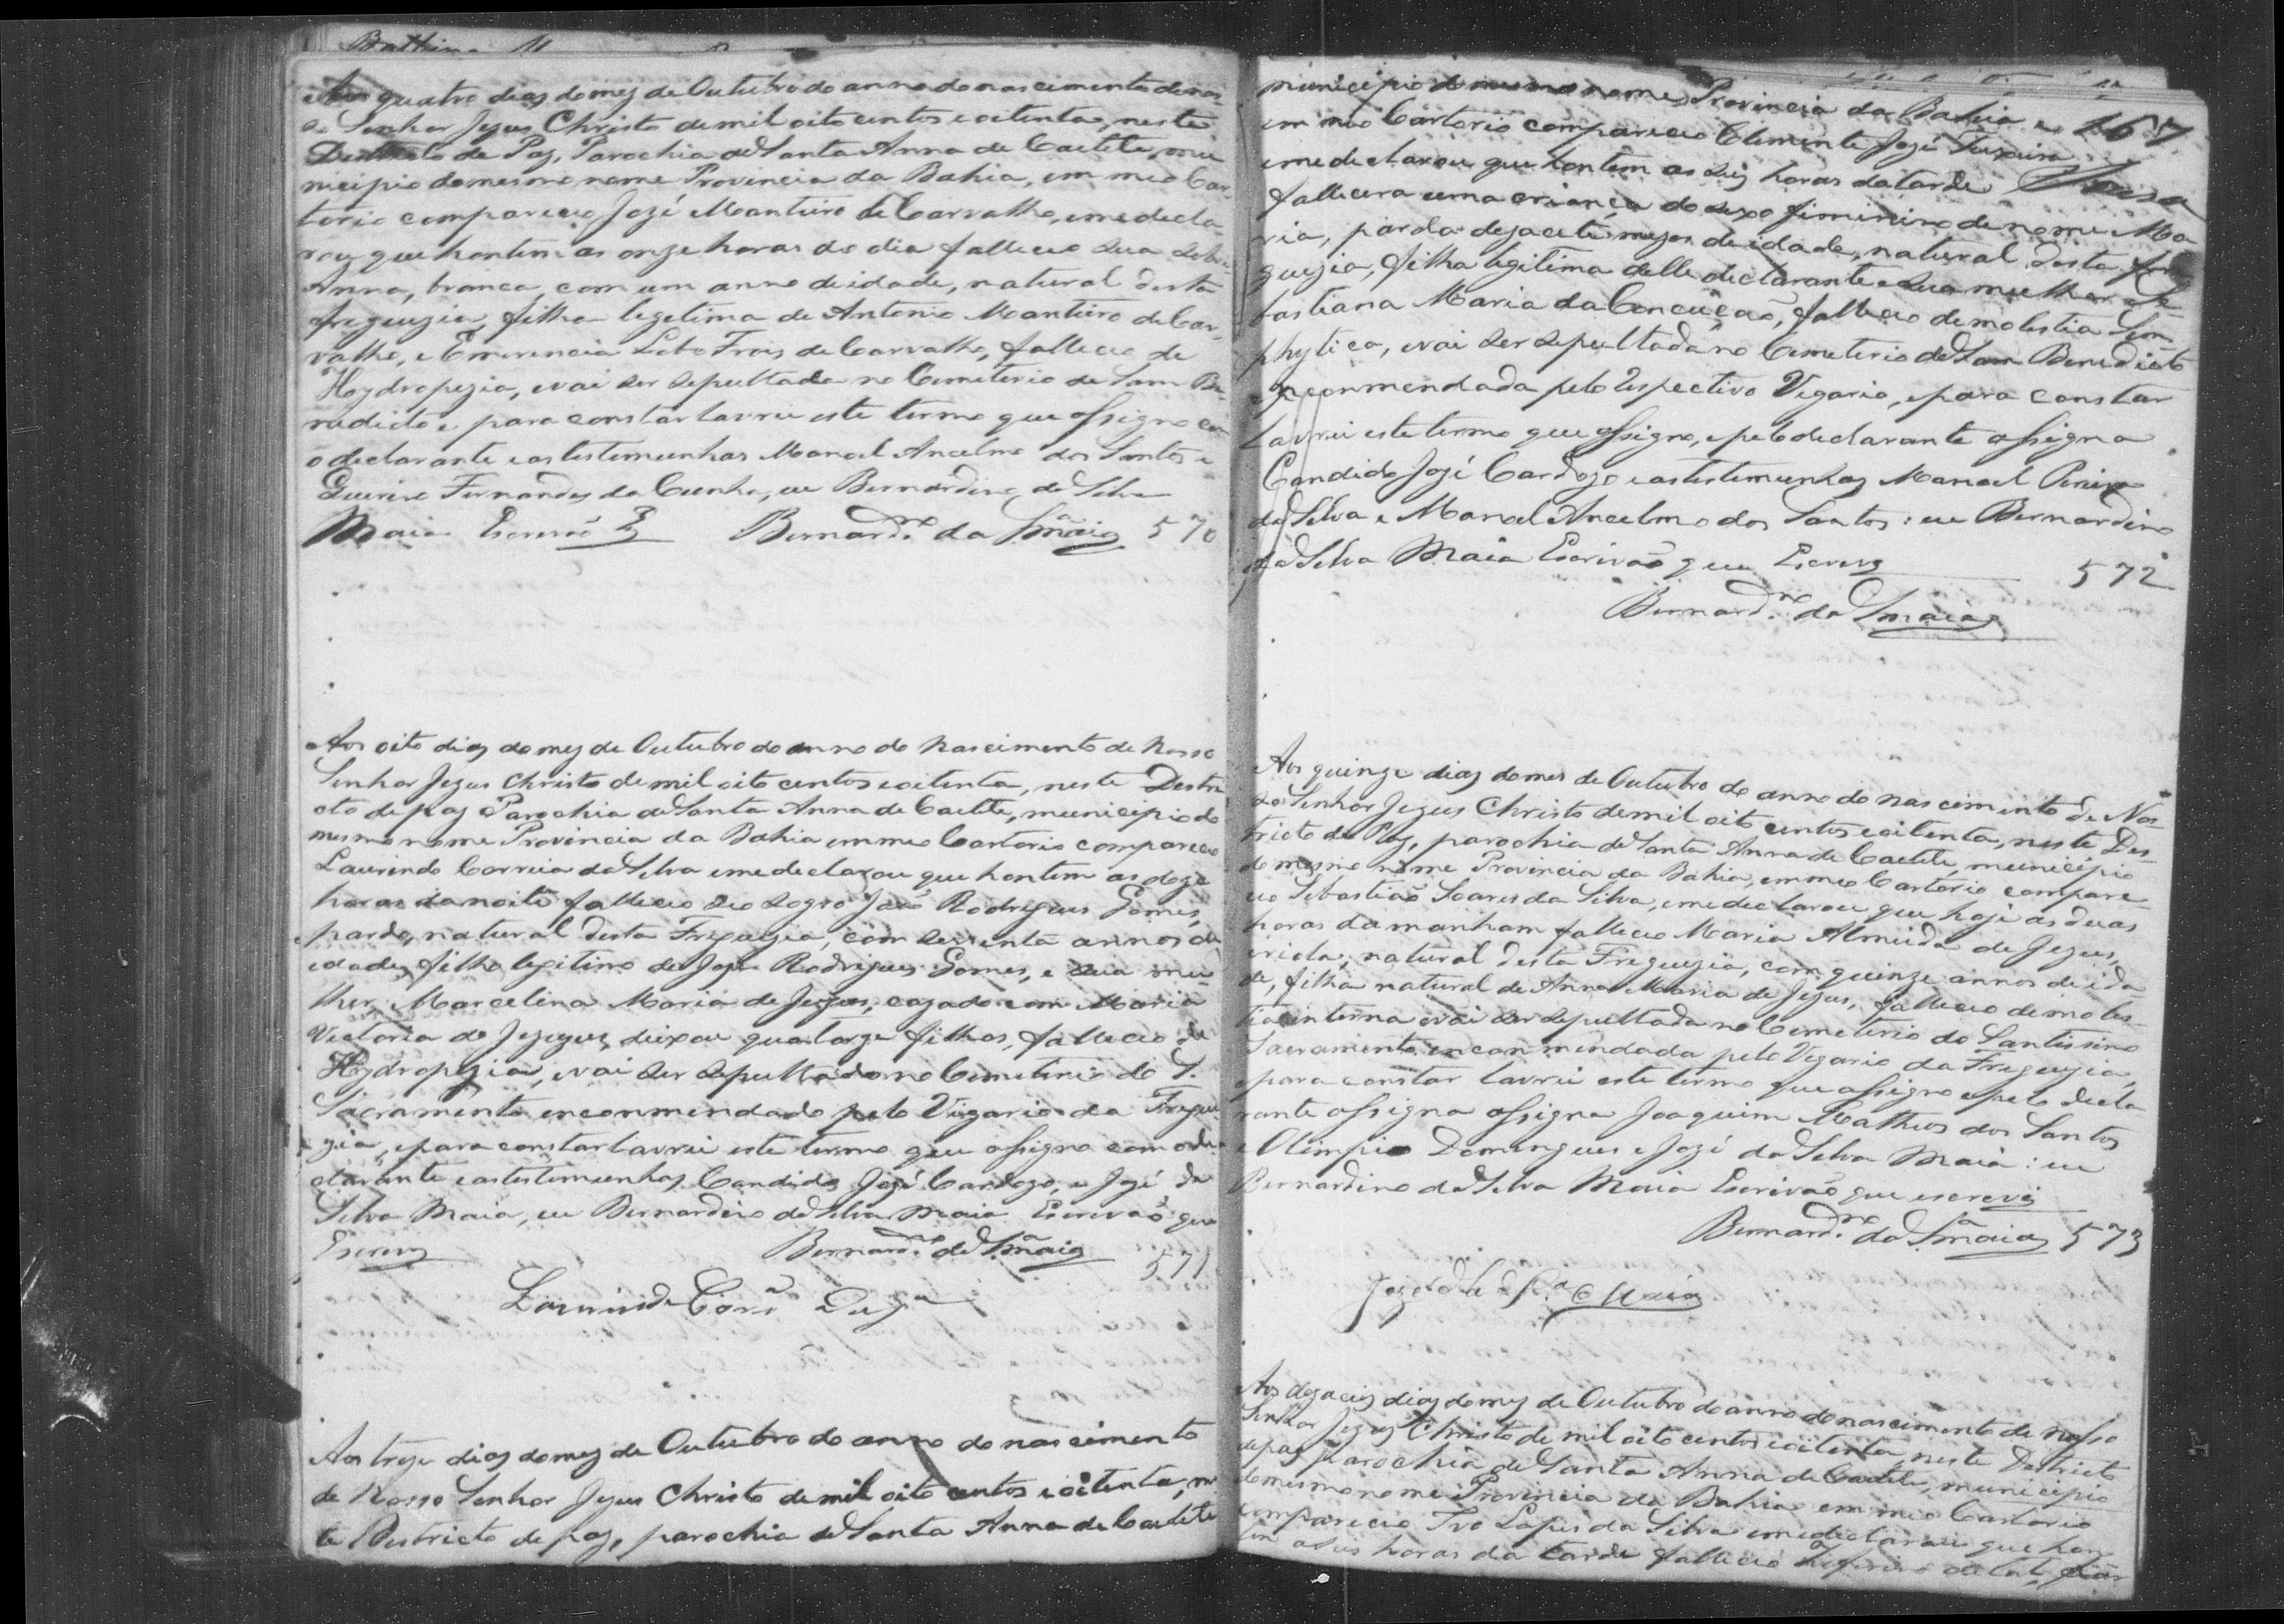 Aos quatro dias do mez de Outubro do anno do nascimento de nos
so Senhor Jezus Christo de mil oito centos e oitenta, neste
Destricto de Paz, Parochia de Santa Anna de Caetité, mu
nicipio do mesmo nome Provincia da Bahia, em meo Car
torio compareceo Jozé Montuiro de Carvalho, e me decla
rou que hontem as onze horas do dia falleceo sua
Anna, branca, com um anno de idade, natural desta
freguezia, filha legitima de Antonio Montuiro de Car
valho, e Emerencia Lobo Frois de Carvalho, falleceo de
Hydropezia, e vai ser sepultada no Cemeterio de Sam Be
nedicto e para constar lavrei este termo que assigno com
o declarante e as testemunhas Manoel Ancelmo dos Santos e
Fernandes da Cunha, eu Bernardino da Silva
Maia Escrivão Bernard.no da S.a Maia 570
Aos oito dias do mez de Outubro do anno do Nascimento de Nosso
Senhor Jezus Christo de mil oito centos e oitenta, neste Destri
cto de paz Parochia de Santa Anna de Caetité, municipio do
mesmo nome Provincia da Bahia em meo Cartorio compareceo
Laurindo Correia da Silva e me declarou que hontem as doze
horas da noite falleceo seo sogro João Rodrigues Gomes,
pardo, natural desta Freguezia, com sessenta annos de
idade, filho legitimo de José Rodrigues Gomes, e sua mu
lher Marcelina Maria de Jezus, cazado com Maria
Victoria de Jezus, deixou quatorze filhos, falleceo de
Hydropezia, e vai ser sepultado no Cemeterio do S.
Sacramento enconmendado pelo Vigario da Fregue
zia, e para constar lavrei este termo que assigno com o de
clarante e as testemunhas Candido Jozé Cardozo, e Jozé da
Silva Maia, eu Bernardino da Silva Maia Escrivão que
Escrevy Bernard.no da S.a Maia 571
Aos treze dias do mez de Outubro do anno do nascimento
de Nosso Senhor Jezus Christo de mil oito centos e oitenta, nes
te Destricto de paz, parochia de Santa Anna de Caetité
municipio do mesmo nome Provincia da Bahia e 167
em meo Cartorio compareceo Clemente Jozé Teixeira
e me declarou que hontem as seis horas da tarde
fallecera uma criança do sexo feminino de nome Ma
ria, parda dezacete mezes de idade, natural desta fre
guezia, filha legitima delle declarante e sua mulher Se
bastiana Maria da Conceição, falleceo de molestia
phytica, e vai ser sepultada no Cemeterio de Sam Benedicto
enconmendada pelo respectivo Vigario, e para constar
lavrei este termo que assigno, e pelo declarante assigna
Candido Jozé Cardozo e as testemunhas Manoel Pereira
da Silva e Manoel Ancelmo dos Santos: eu Bernardino
da Silva Maia Escrivão que Escrevy 572
Bernard.no da S.a Maia
Aos quinze dias do mes de Outubro do anno do nascimento de Nos
so Senhor Jezus Christo de mil oito centos e oitenta, neste Des
tricto de Paz, parochia de Santa Anna de Caetité, municipio
do mesmo nome Provincia da Bahia, em meo Cartorio compare
ceo Sebastião Soares da Silva, e me declarou que hoje as duas
horas da manham falleceo Maria Almeida de Jezus,
criola, natural desta Freguezia, com quinze annos de ida
de, filha natural de Anna Maria de Jezus, falleceo de moles
tia interna e vai ser sepultada no Cemeterio do Santissimo
Sacramento enconmendada pelo Vigario da Freguezia,
e para constar lavrei este termo que assigno e pelo decla
rante assigna assigna Joaquim Matheos dos Santos
e Olimpio Domingues e Jozé da Silva Maia: eu
Bernardino da Silva Maia Escrivão que escrevy
Bernard.no da S.a Maia 573
Jozé da S.a Maia
Aos dezaceis dias do mez de Outubro do anno do nascimento de nosso
Senhor Jezus Christo de mil oito centos e oitenta, neste Destricto
de paz Parochia de Santa Anna de Caetité, municipio
do mesmo nome Provincia da Bahia em meo Cartorio
compareceo Ivo Lopes da Silva e me declarou que hon
tem as seis horas da tarde falleceo